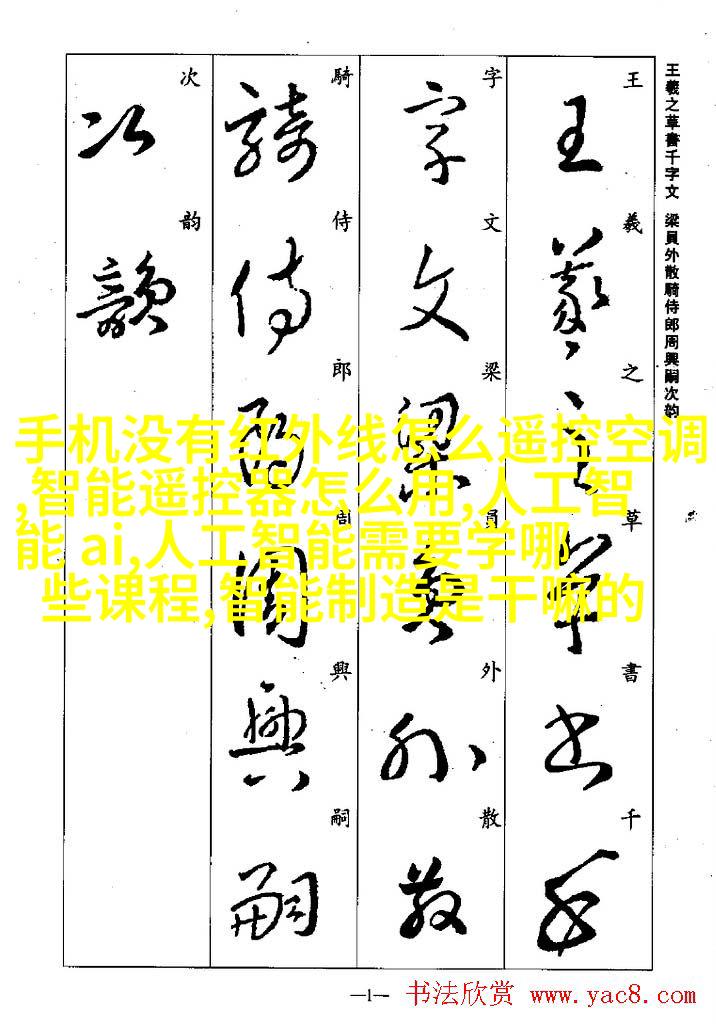 王羲之草書千字文 梁員外散騎侍郎周興嗣次韵
王羲之草書千
字文梁員外散
騎侍郎周興嗣
次韵
手机没有红外线怎么遥控空调
,智能遥控器怎么用,人工智
能 ai,人工智能需要学哪
些课程,智能制造是干嘛的
—1—
书法欣赏 www.yac8.com